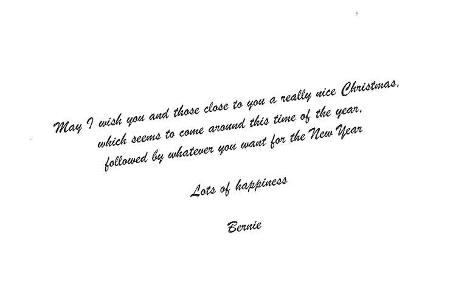 May I wish you and those close to you a really nice Christmas,
which seems to come around this time of the year,
followed by whatever you want for the New Year
Lots of happiness
Bernie